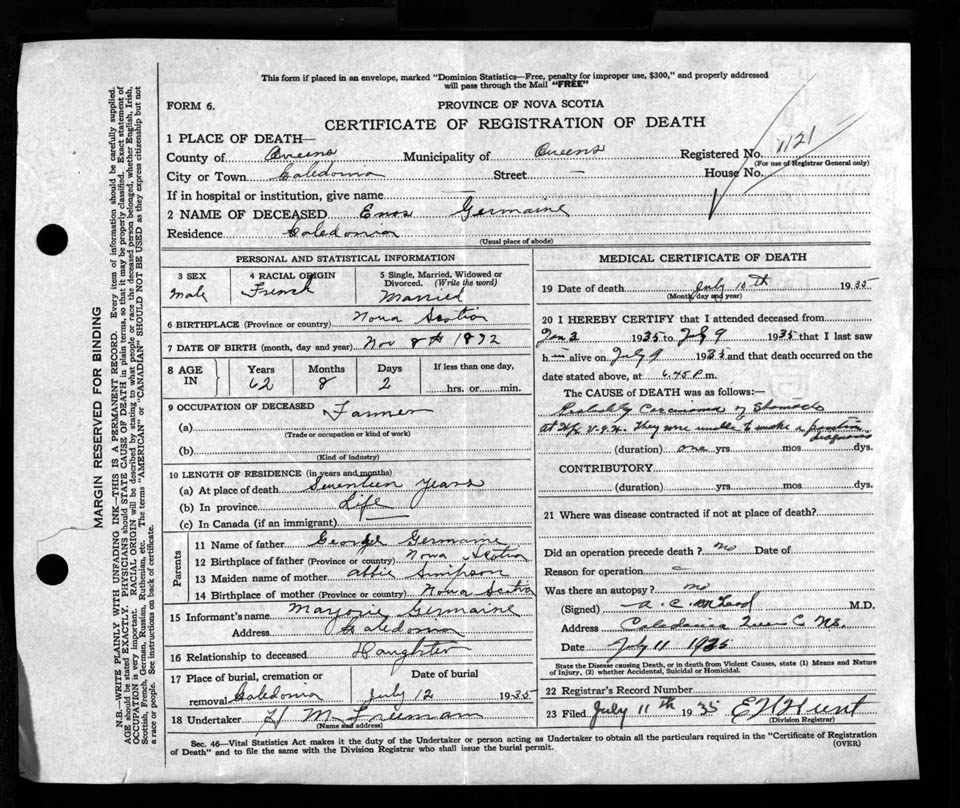 This form if placed in an envelope, marked "Dominion Statistics—Free, penalty for improper use, $300," and properly addressed
will pass through the Mail "FREE"
FORM 6.
PROVINCE OF NOVA SCOTIA
CERTIFICATE OF REGISTRATION OF DEATH
1 PLACE OF DEATH—
County of Queens Municipality of Queens Registered No. 1121
(For use of Registrar General only)
City or Town Caledonia Street — House No.
If in hospital or institution, give name —
2 NAME OF DECEASED Enos Germaine
Residence Caledonia
(Usual place of abode)
PERSONAL AND STATISTICAL INFORMATION
3 SEX 4 RACIAL ORIGIN 5 Single, Married, Widowed or Divorced. (Write the word)
Male French Married
6 BIRTHPLACE (Province or country) Nova Scotia
7 DATE OF BIRTH (month, day and year) Nov 8th 1872
8 AGE IN Years Months Days If less than one day,
62 8 2 hrs. or min.
9 OCCUPATION OF DECEASED
(a) Farmer
(Trade or occupation or kind of work)
(b)
(Kind of industry)
10 LENGTH OF RESIDENCE (in years and months)
(a) At place of death Seventeen years
(b) In province Life
(c) In Canada (if an immigrant) —
Parents
11 Name of father George Germaine
12 Birthplace of father (Province or country) Nova Scotia
13 Maiden name of mother Abbie Simpson
14 Birthplace of mother (Province or country) Nova Scotia
15 Informant's name Marjorie Germaine
Address Caledonia
16 Relationship to deceased Daughter
17 Place of burial, cremation or removal Caledonia Date of burial July 12 1935
18 Undertaker H M Freeman
(Name and address)
MEDICAL CERTIFICATE OF DEATH
19 Date of death July 10th 1935
(Month, day and year)
20 I HEREBY CERTIFY that I attended deceased from
Jan 3 1935 to July 9 1935 that I last saw
h im alive on July 9 1935 and that death occurred on the
date stated above, at 6.45 P m.
The CAUSE OF DEATH was as follows:—
Probably Carcinoma of Stomach
At V.G.H. They were unable to make a positive
diagnosis
(duration) one yrs mos dys.
CONTRIBUTORY
(duration) yrs mos dys.
21 Where was disease contracted if not at place of death?
Did an operation precede death? no Date of
Reason for operation
Was there an autopsy? no
(Signed) A. C. M.D.
Address Caledonia Queens C N.S.
Date July 11 1935
State the Disease causing Death, or in death from Violent Causes, state (1) Means and Nature
of Injury, (2) whether Accidental, Suicidal or Homicidal.
22 Registrar's Record Number
23 Filed July 11th 1935 Hunt
(Division Registrar)
Sec. 46—Vital Statistics Act makes it the duty of the Undertaker or person acting as Undertaker to obtain all the particulars required in the "Certificate of Registration
of Death" and to file the same with the Division Registrar who shall issue the burial permit. (OVER)
MARGIN RESERVED FOR BINDING
N.B.—WRITE PLAINLY WITH UNFADING INK—THIS IS A PERMANENT RECORD. Every item of information should be carefully supplied.
AGE should be stated EXACTLY. PHYSICIANS should STATE CAUSE OF DEATH in plain terms, so that it may be properly classified. Exact statement of
OCCUPATION is very important. RACIAL ORIGIN will be described by stating to what people or race the deceased person belonged, whether English, Irish,
Scottish, French, German, Russian, Ruthenian, etc. The terms "AMERICAN" or "CANADIAN" SHOULD NOT BE USED as they express citizenship but not
a race or people. See instructions on back of certificate.